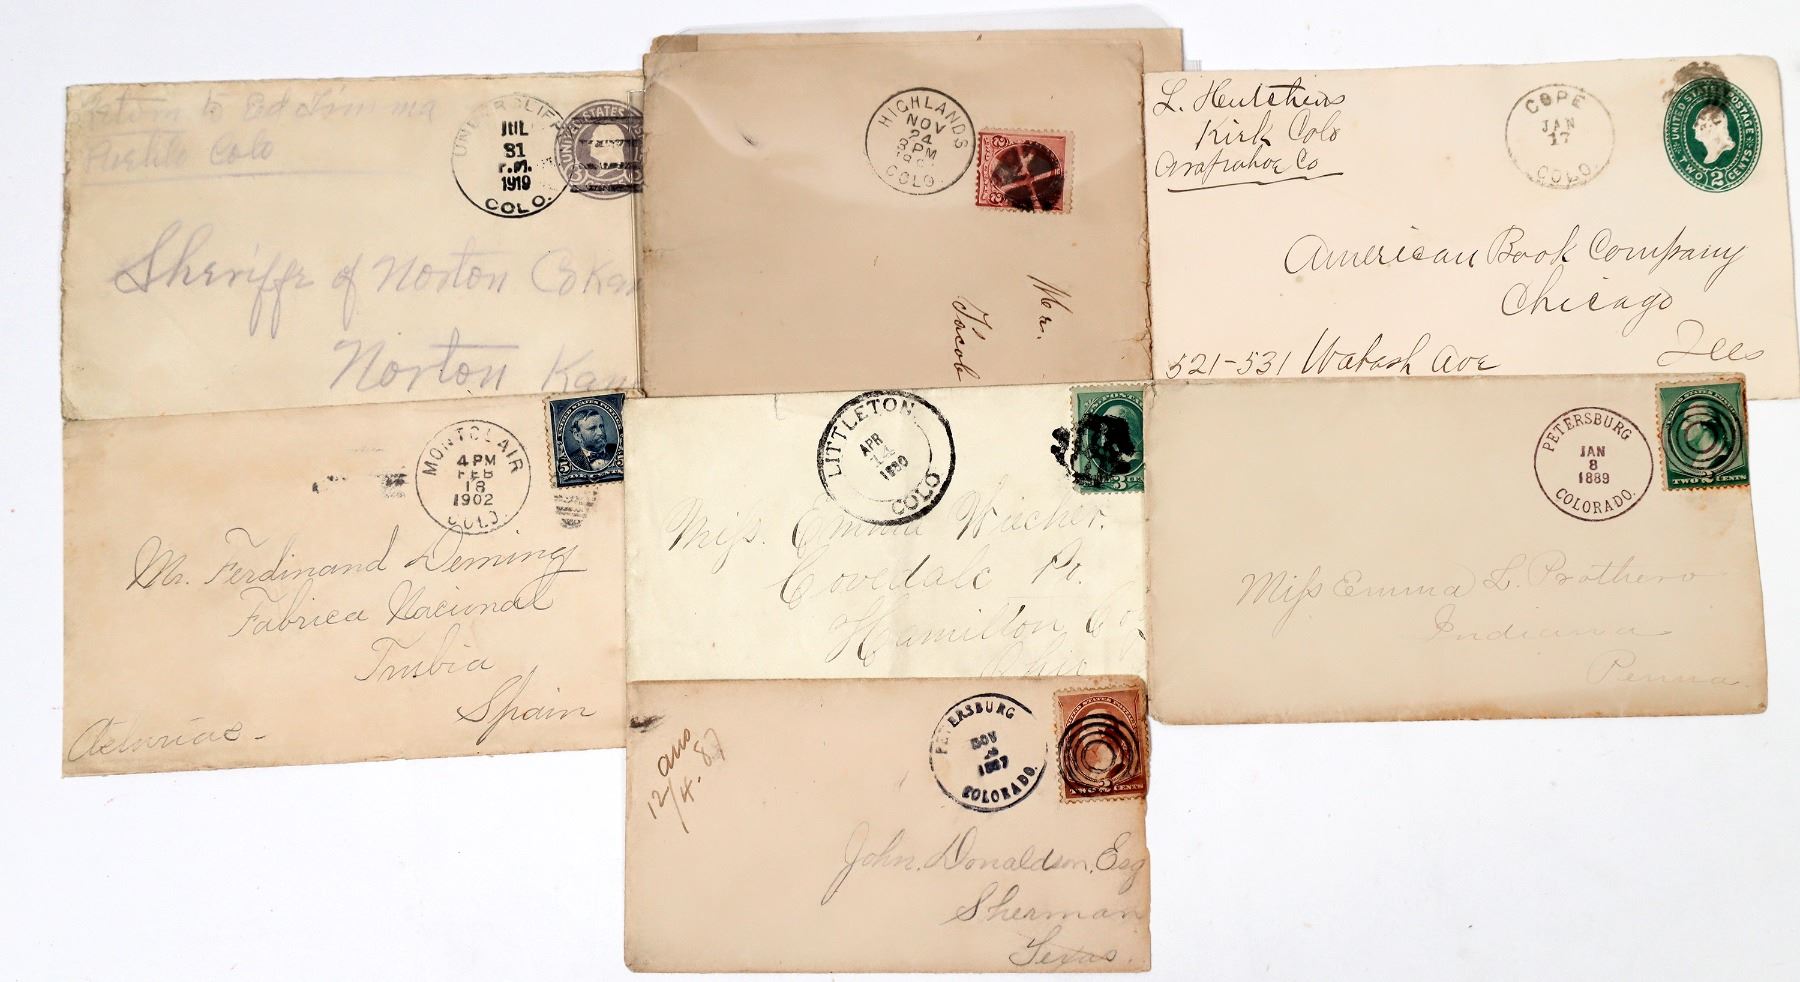 Return to Ed Timma
Pueblo Colo
UNDERCLIFF
JUL
31
P.M.
1919
COLO.
UNITED STATES
Sheriffe of Norton Co Kan
Norton Kan
HIGHLANDS
NOV
24
3 PM
COLO.
Mr.
Jacob
L. Hutchins
Kirk Colo
Arapahoe Co
COPE
JAN
17
COLO.
UNITED STATES POSTAGE
TWO 2 CENTS
American Book Company
Chicago
Ills
521-531 Wabash Ave
MONTCLAIR
4 PM
FEB
18
1902
COLO.
5 5
Mr. Ferdinand Deming
Fabrica Nacional
Trubia
Spain
Asturias -
LITTLETON.
APR
14
1880
COLO
3 CE
Miss. Emma Wiecher.
Covedale Po.
Hamilton Co
Ohio
PETERSBURG
JAN
8
1889
COLORADO.
TWO 2 CENTS
Miss Emma L. Prothero
Indiana
Penna.
ans
12/4. 87
PETERSBURG
NOV
1887
COLORADO.
TWO 2 CENTS
John. Donaldson, Esq
Sherman
Texas.